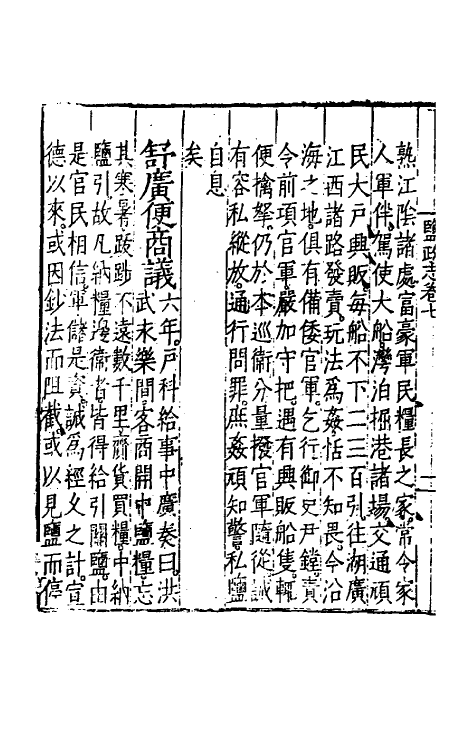 鹽政志卷七
熟江陰諸處富豪軍民糧長之家常令家
人軍伴駕使大船灣泊掘港諸場交通頑
民大戶興販每船不下二三百引往湖廣
江西諸路發賣玩法爲姦恬不知畏今沿
海之地俱有備倭官軍乞行御史尹鏜責
令前項官軍嚴加守把遇有興販船隻輒
便擒拏仍於本巡衞分量撥官軍隨從誡
有容私縱放通行問罪庶姦頑知警私鹽
自息
矣
舒廣便商議
六年戶科給事中廣奏曰洪
武未樂間客商開中鹽糧忘
其寒暑跋踄不遠數千里齎貨買糧中納
鹽引故凡納糧邊衞者皆得給引關鹽由
是官民相信軍儲是資誠爲經久之計宣
德以來或因鈔法而阻截或以見鹽而停